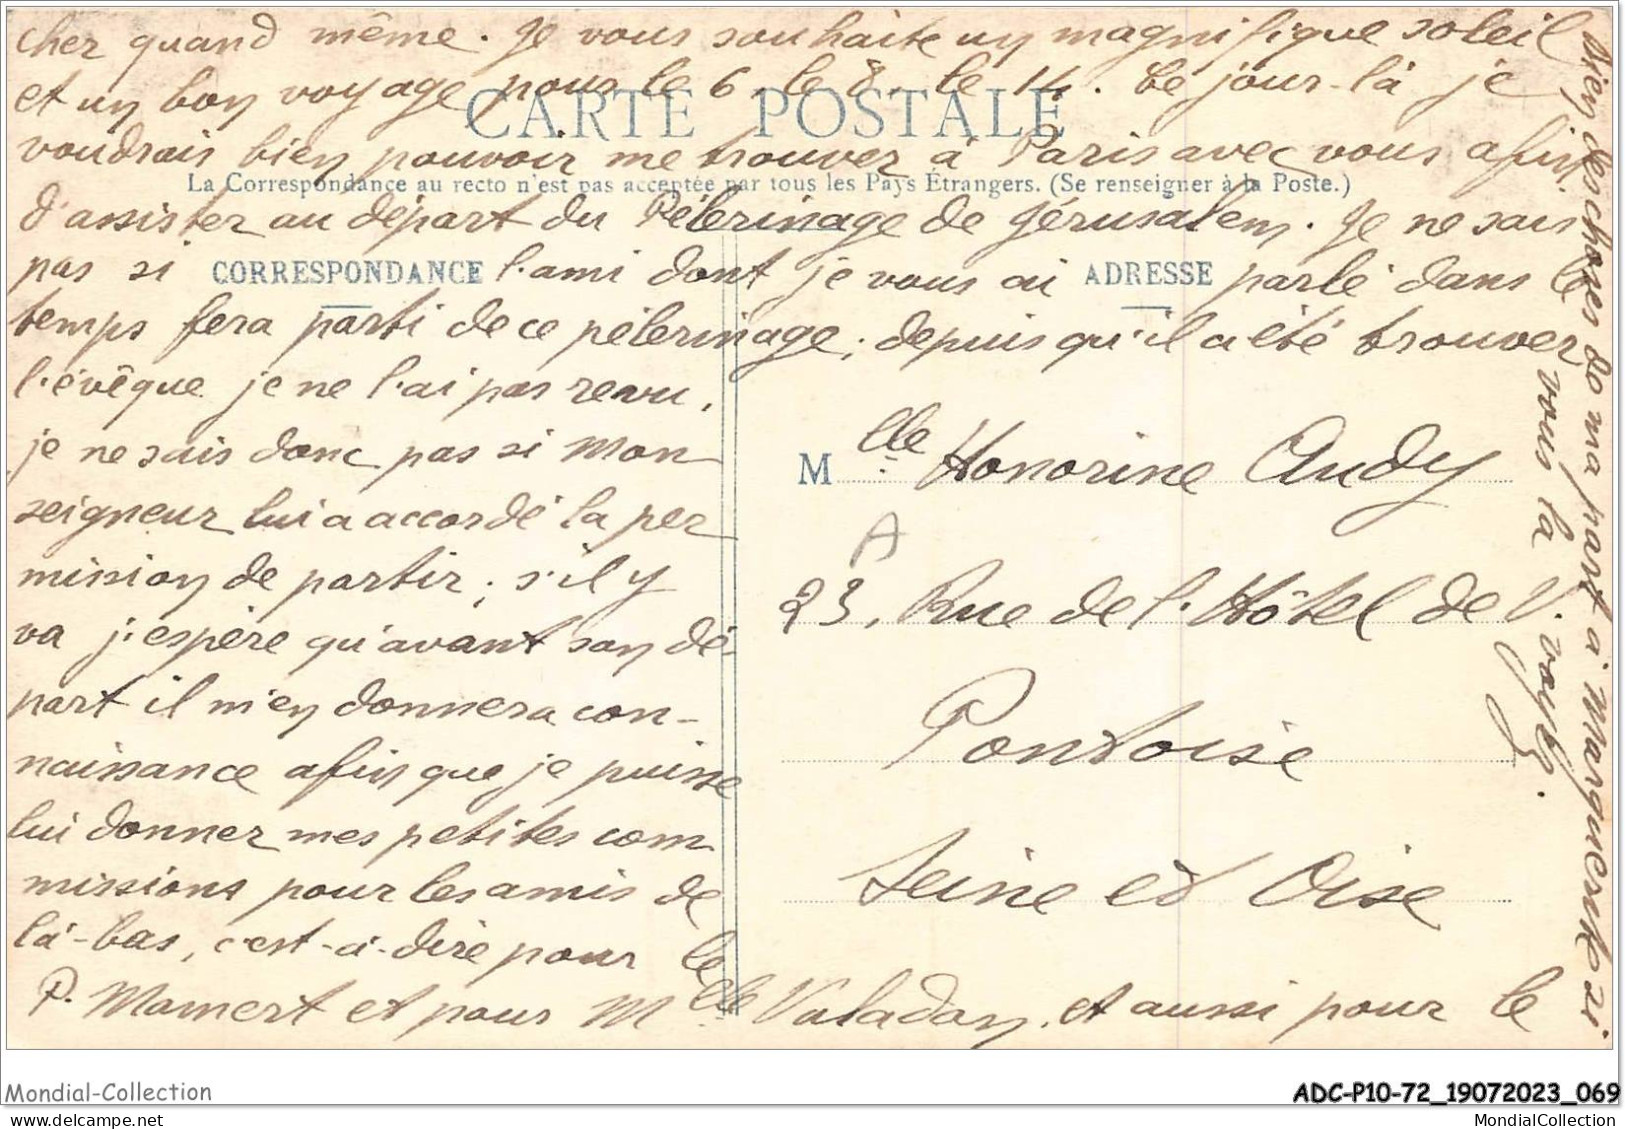 cher quand même. Je vous souhaite un magnifique soleil
et un bon voyage pour le 6, le 8, le 14. Ce jour-là je
CARTE POSTALE
voudrais bien pouvoir me trouver à Paris avec vous afin
La Correspondance au recto n'est pas acceptée par tous les Pays Étrangers. (Se renseigner à la Poste.)
d'assister au départ du Pélerinage de Jérusalem. Je ne sais
pas si l'ami dont je vous ai parlé dans le
CORRESPONDANCE
ADRESSE
temps fera parti de ce pélerinage; depuis qu'il a été trouver
l'évêque je ne l'ai pas revu,
je ne sais donc pas si Mon
seigneur lui a accordé la per
mission de partir; s'il y
va j'espère qu'avant son dé-
part il m'en donnera con-
naissance afin que je puisse
lui donner mes petites com
missions pour les amis de
là-bas, c'est-à-dire pour le
P. Mamert et pour Mlle Valadon, et aussi pour le
Mlle Honorine Audy
A
23, Rue de l'Hôtel de V.
Pontoise
Seine et Oise
Bien des choses de ma part à Marguerite si
vous la voyez.
Mondial-Collection
ADC-P10-72_19072023_069
MondialCollection
MondialCollection